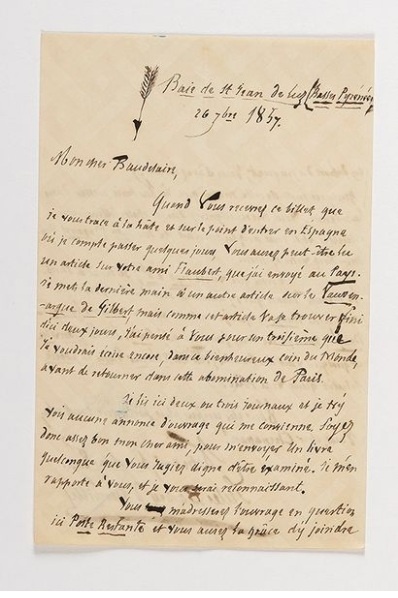 Baie de St Jean de Luz (Basses Pyrénées
26 7bre 1857.
Mon cher Baudelaire,
Quand Vous recevrez ce billet que
je vous trace à la hâte et sur le point d'entrer en Espagne
où je compte passer quelques jours, Vous aurez peut-être lu
un article sur votre ami Flaubert, que j'ai envoyé au Pays.
Je mets la dernière main à un autre article sur le
de Gilbert mais comme cet article va se trouver fini
d'ici deux jours, j'ai pensé à Vous pour un troisième que
je voudrais écrire encore, dans ce bienheureux coin du Monde,
avant de retourner dans cette abomination de Paris.
Je lis ici deux ou trois journaux et je n'y
vois aucune annonce d'ouvrage qui me convienne. Soyez
donc assez bon mon cher ami, pour m'envoyer un livre
quelconque que Vous jugiez digne d'être examiné. Je m'en
rapporte à Vous, et je vous serai reconnaissant.
Vous m'adresserez l'ouvrage en question
ici Poste Restante et vous aurez la grâce d'y joindre